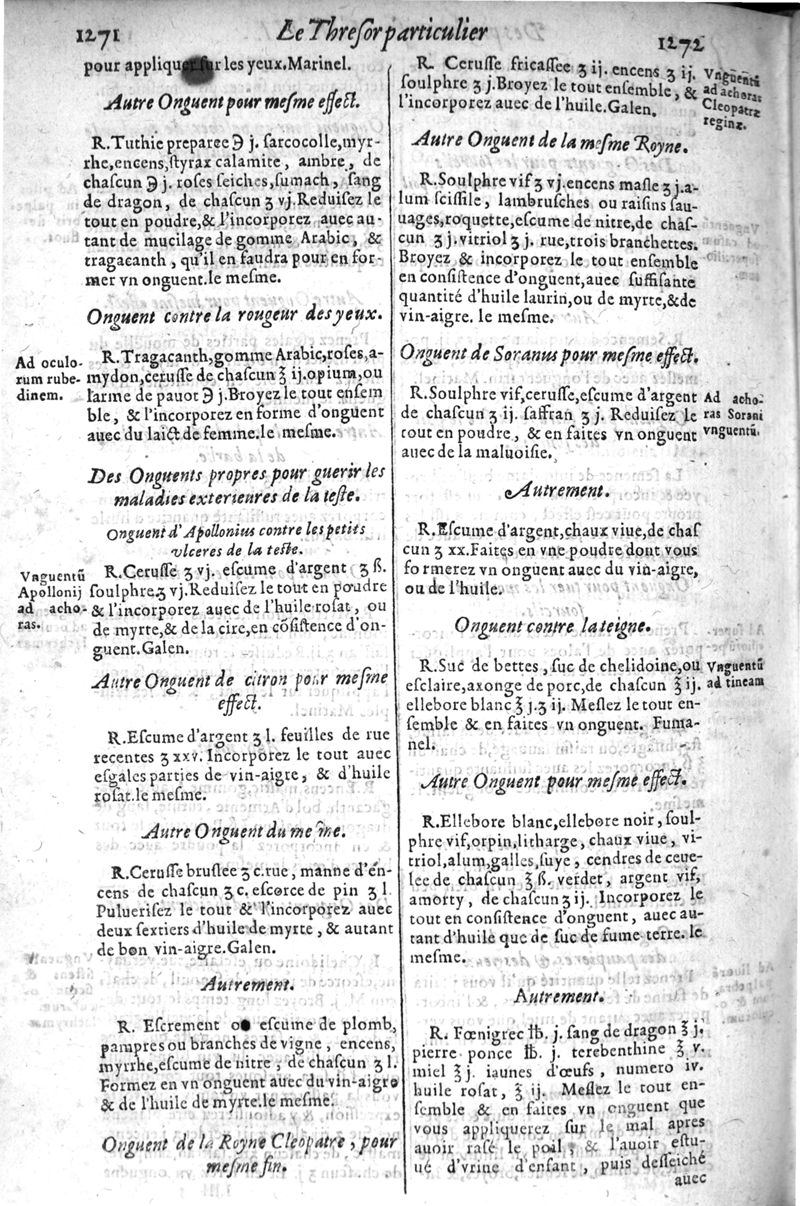 1271
Le Thresor particulier
1272
pour appliquer sur les yeux. Marinel.
Autre Onguent pour mesme effect.
R. Tuthie preparee ℈ j. sarcocolle, myr-
rhe, encens, styrax calamite, ambre, de
chascun ℈ j. roses seiches, sumach, sang
de dragon, de chascun ʒ vj. Reduisez le
tout en poudre, & l'incorporez auec au-
tant de mucilage de gomme Arabic, &
tragacanth, qu'il en faudra pour en for-
mer vn onguent. le mesme.
Onguent contre la rougeur des yeux.
Ad oculo-
rum rube-
dinem.
R. Tragacanth, gomme Arabic, roses, a-
mydon, cerusse de chascun ℥ ij. opium, ou
larme de pauot ℈ j. Broyez le tout ensem
ble, & l'incorporez en forme d'onguent
auec du laict de femme. le mesme.
Des Onguents propres pour guerir les
maladies exterieures de la teste.
Onguent d'Apollonius contre les petits
vlceres de la teste.
Vnguentū
Apollonij
ad acho-
ras.
R. Cerusse ʒ vj. escume d'argent ʒ ß.
soulphre ʒ vj. Reduisez le tout en poudre
& l'incorporez auec de l'huile rosat, ou
de myrte, & de la cire, en cōsistence d'on-
guent. Galen.
Autre Onguent de citron pour mesme
effect.
R. Escume d'argent ʒ l. feuilles de rue
recentes ʒ xxv. Incorporez le tout auec
esgales parties de vin-aigre, & d'huile
rosat. le mesme.
Autre Onguent du mesme.
R. Cerusse bruslee ʒ c. rue, manne d'en-
cens de chascun ʒ c. escorce de pin ʒ l.
Puluerisez le tout & l'incorporez auec
deux sextiers d'huile de myrte, & autant
de bon vin-aigre. Galen.
Autrement.
R. Escrement ou escume de plomb,
pampres ou branches de vigne, encens,
myrrhe, escume de nitre, de chascun ʒ l.
Formez en vn onguent auec du vin-aigre
& de l'huile de myrte. le mesme.
Onguent de la Royne Cleopatre, pour
mesme fin.
R. Cerusse fricassee ʒ ij. encens ʒ ij.
soulphre ʒ j. Broyez le tout ensemble, &
l'incorporez auec de l'huile. Galen.
Vnguentū
ad achoras
Cleopatræ
reginæ.
Autre Onguent de la mesme Royne.
R. Soulphre vif ʒ vj. encens masle ʒ j. a-
lum scissile, lambrusches ou raisins sau-
uages, roquette, escume de nitre, de chas-
cun ʒ j. vitriol ʒ j. rue, trois branchettes.
Broyez & incorporez le tout ensemble
en consistence d'onguent, auec suffisante
quantité d'huile laurin, ou de myrte, & de
vin-aigre. le mesme.
Onguent de Soranus pour mesme effect.
R. Soulphre vif, cerusse, escume d'argent
de chascun ʒ ij. saffran ʒ j. Reduisez le
tout en poudre, & en faites vn onguent
auec de la maluoisie.
Ad acho-
ras Sorani
vnguentū.
Autrement.
R. Escume d'argent, chaux viue, de chas
cun ʒ xx. Faites en vne poudre dont vous
formerez vn onguent auec du vin-aigre,
ou de l'huile.
Onguent contre la teigne.
R. Suc de bettes, suc de chelidoine, ou
esclaire, axonge de porc, de chascun ℥ ij.
ellebore blanc ℥ j. ʒ ij. Meslez le tout en-
semble & en faites vn onguent. Fuma-
nel.
Vnguentū
ad tineam
Autre Onguent pour mesme effect.
R. Ellebore blanc, ellebore noir, soul-
phre vif, orpin, litharge, chaux viue, vi-
triol, alum, galles, suye, cendres de ceue-
lee de chascun ℥ ß. verdet, argent vif,
amorty, de chascun ʒ ij. Incorporez le
tout en consistence d'onguent, auec au-
tant d'huile que de suc de fume terre. le
mesme.
Autrement.
R. Fœnigrec ℔. j. sang de dragon ℥ j.
pierre ponce ℔. j. terebenthine ℥ v.
miel ℥ j. iaunes d'œufs, numero iv.
huile rosat, ℥ ij. Meslez le tout en-
semble & en faites vn onguent que
vous appliquerez sur le mal apres
auoir rasé le poil, & l'auoir estu-
ué d'vrine d'enfant, puis desseiché
auec